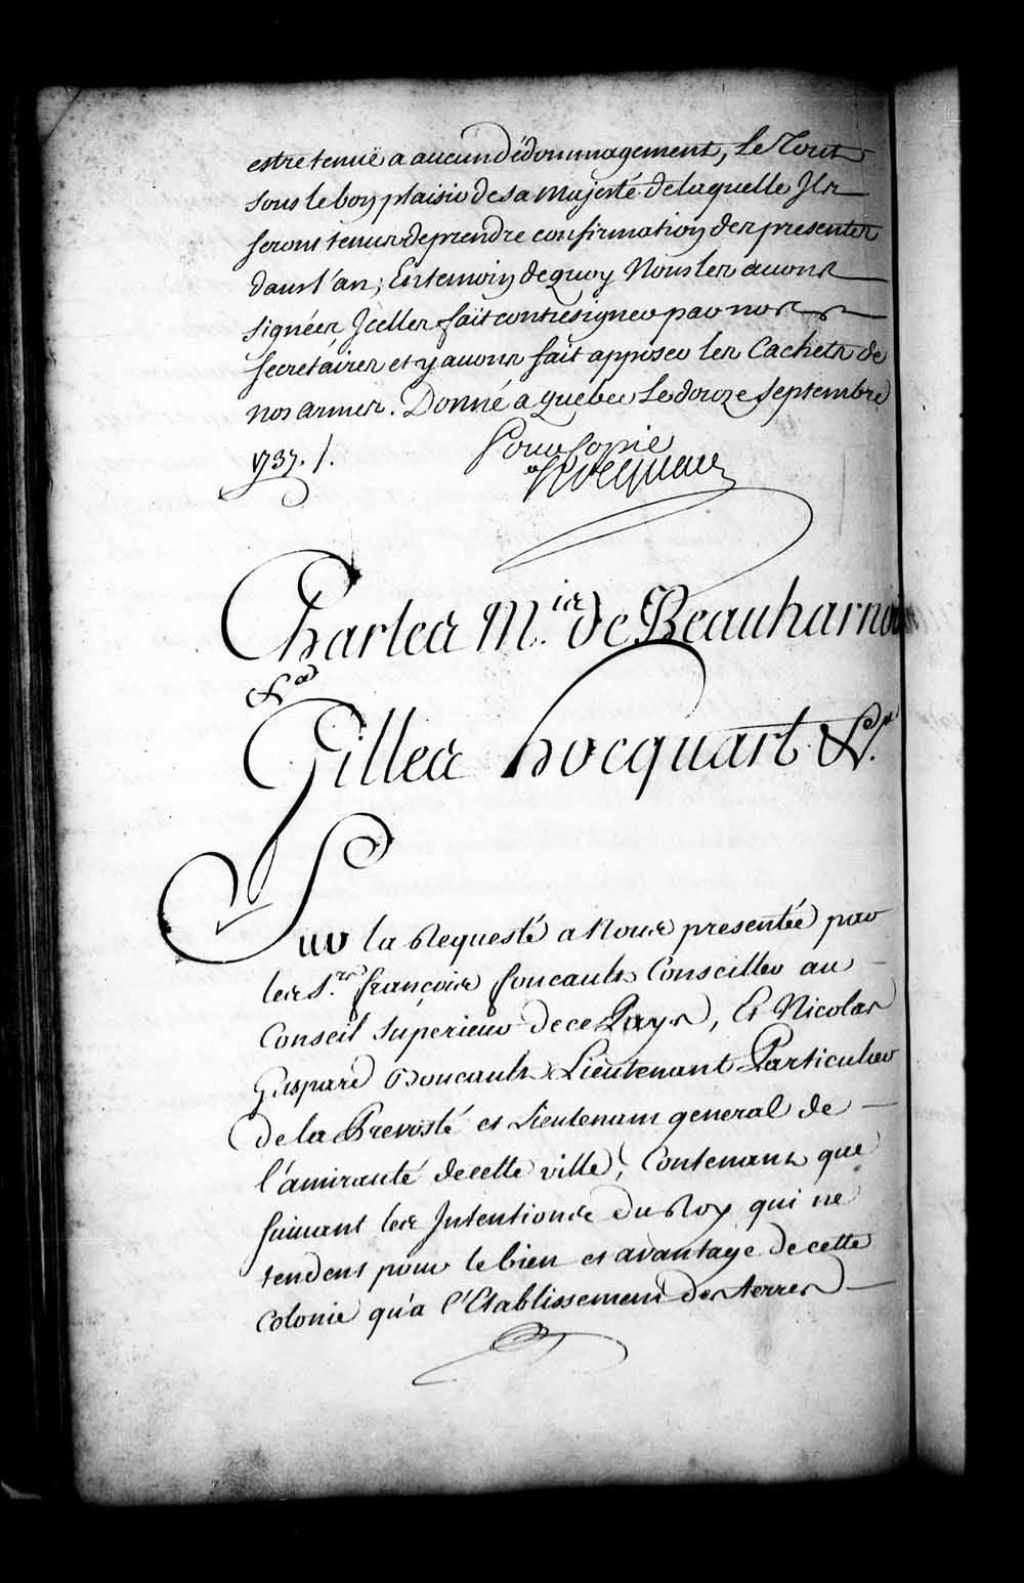 estre tenuë a aucun dédommagement, Le Tout
sous le bon plaisir de sa Majesté de laquelle Ils
seront tenus de prendre confirmation des presentes
dans l'an; En temoin de quoy Nous les avons
signées Jcelles fait contresigner par nos
secretaires et y avons fait apposer les Cachets de
nos armes. Donné a quebec Le douze septembre
1737. /.
Pour Copie
Hocquart
Charles M.is de Beauharnois
&a
Gilles hocquart &a.
Sur la Requeste a Nous presentée par
les S.rs françois foucault Conseiller au
Conseil Superieur de ce Pays, Et Nicolas
Gaspard Boucault Lieutenant Particulier
de la Prevosté et Lieutenant general de
l'amirauté de cette ville; Contenant que
suivant les Intentions du Roy qui ne
tendent pour le bien et avantage de cette
Colonie qu'a l'Etablissement des terres